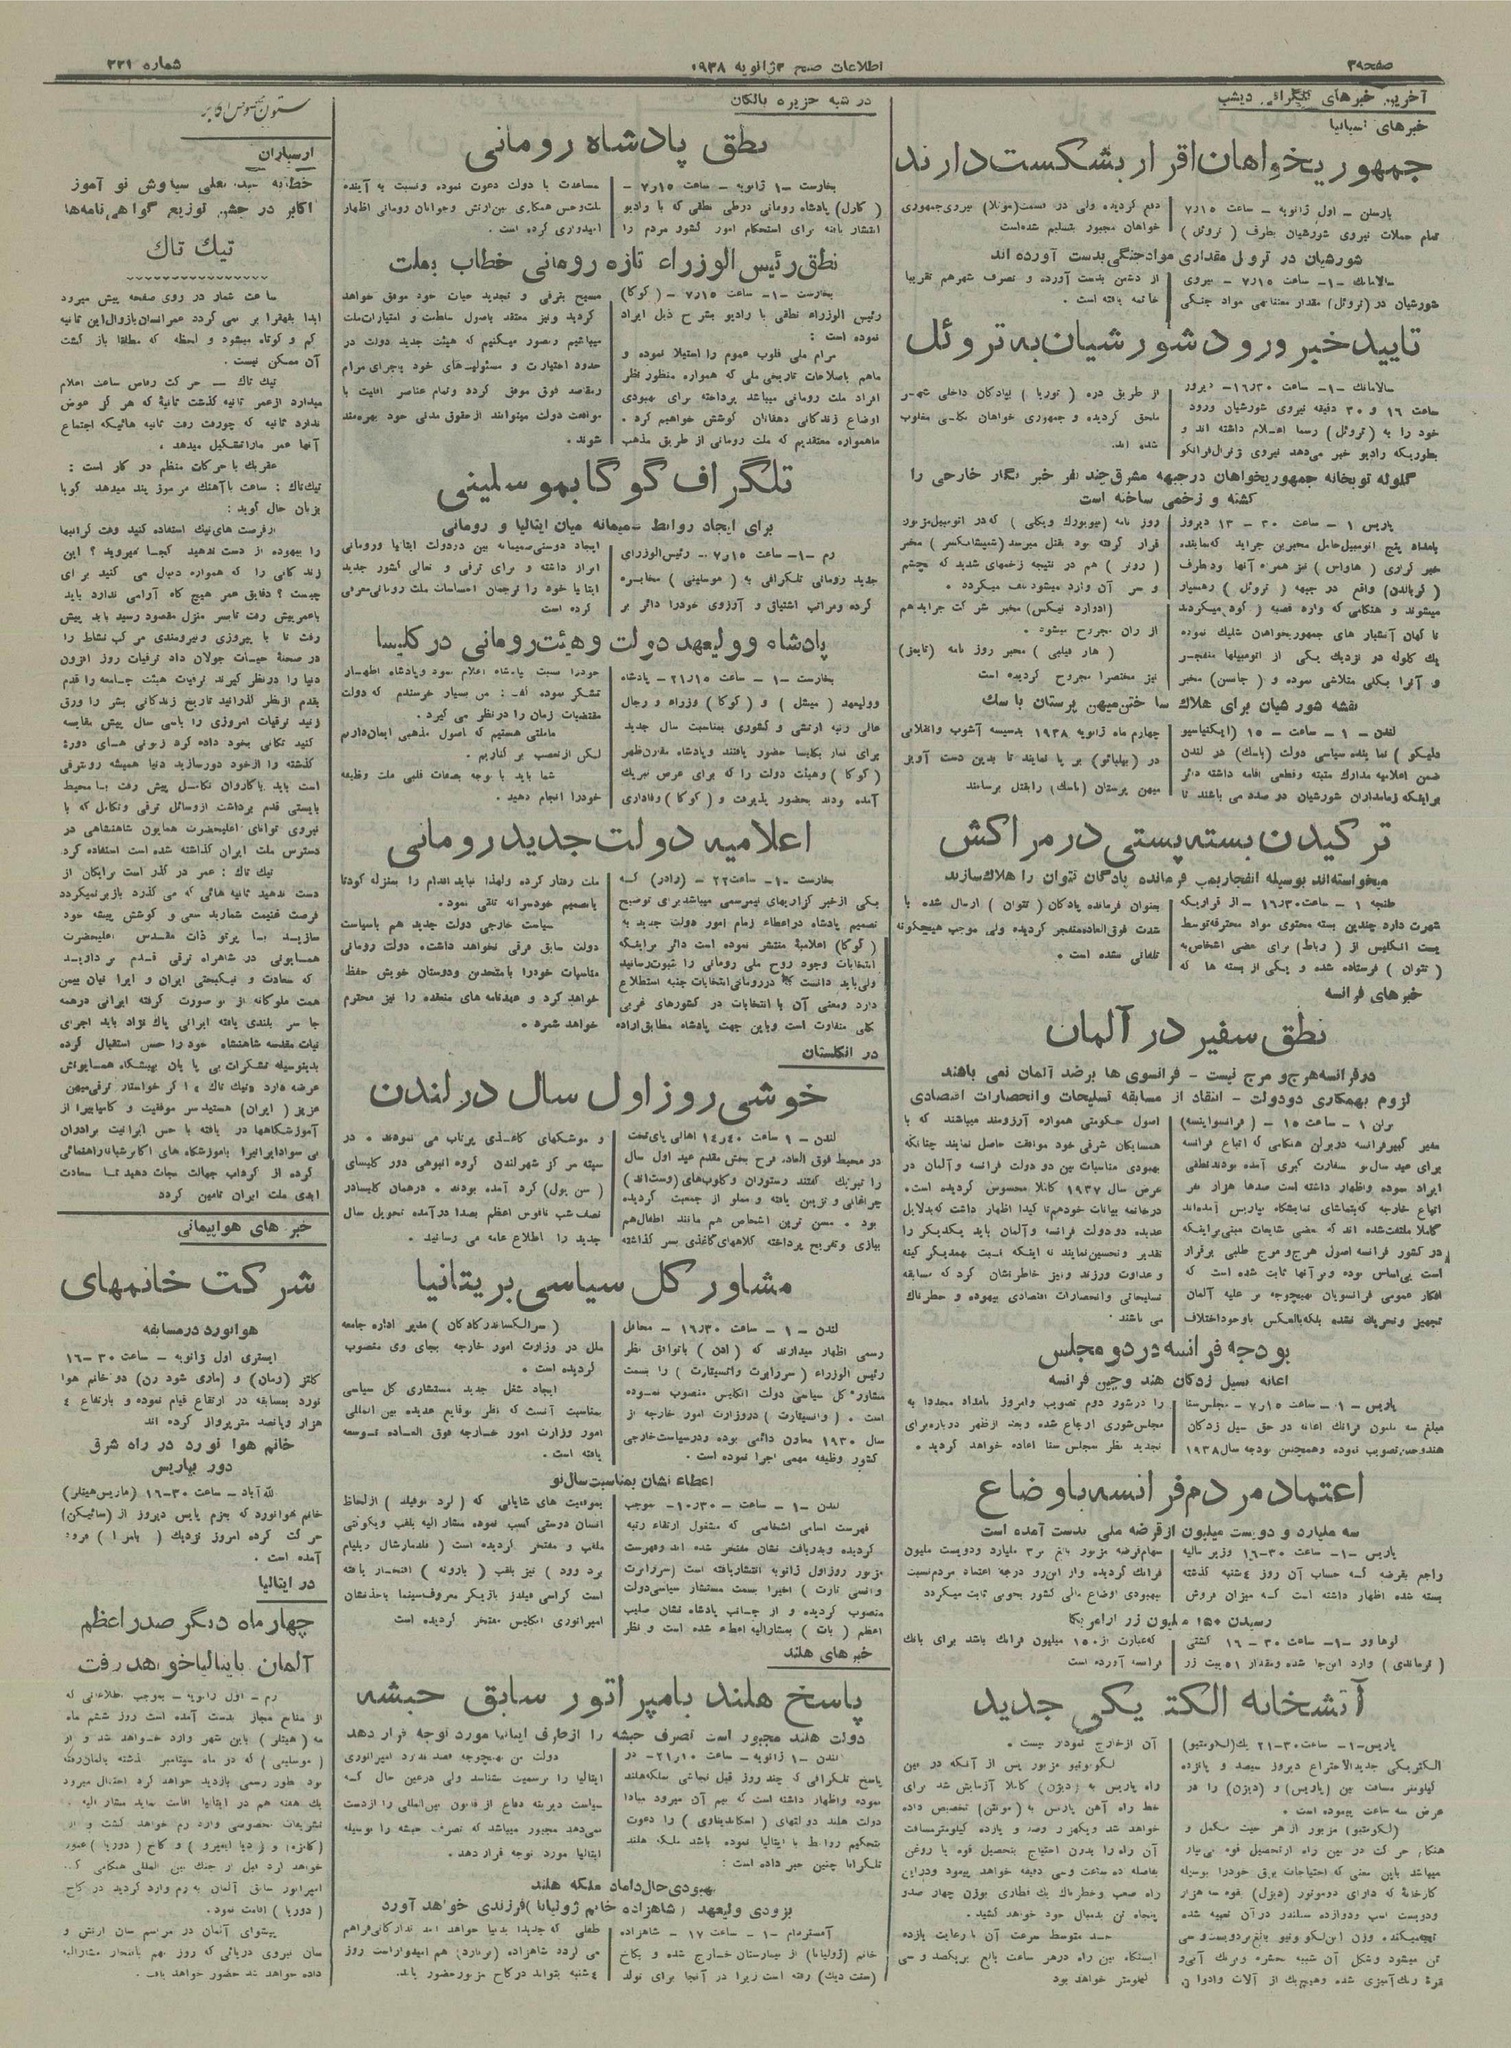 صفحه ۳
اطلاعات صبح ۳ ژانویه ۱۹۳۸
شماره ۲۲۱
آخرین خبرهای تلگرافی دیشب
خبرهای اسپانیا
جمهوریخواهان اقرار بشکست دارند
بارسلن - اول ژانویه - ساعت ۷٫۱۵
تمام حملات نیروی شورشیان بطرف (تروئل)
دفع گردیده ولی در قسمت نیروی جمهوری
خواهان مجبور شده است
شورشیان در تروئل مقداری مواد جنگی بدست آورده اند
سالامانک -۱- ساعت ۷٫۱۵ - نیروی
شورشیان در (تروئل) مقدار معتنابهی مواد جنگی
از دشمن بدست آورده و تصرف شهر هم تقریباً
خاتمه یافته است .
تایید خبر ورود شورشیان به تروئل
سالامانک -۱- ساعت ۱۶٫۳۰- دیروز
ساعت ۱۶ و ۳۰ دقیقه نیروی شورشیان ورود
خود را به (تروئل) رسماً اعلام داشته اند و
بطوریکه رادیو خبر می‌دهد نیروی ژنرال فرانکو
از طریق دره (توریا) بپادگان داخلی شهر
ملحق گردیده و جمهوری خواهان بکلی مغلوب
شده اند.
گلوله توپخانه جمهوریخواهان در جبهه مشرق چند نفر خبرنگار خارجی را
کشته و زخمی ساخته است
پاریس ۱ - ساعت ۳۰ - ۱۳ دیروز
بامداد پنج اتومبیل حامل مخبرین جراید که نماینده
خبر گزاری (هاواس) نیز همراه آنها بود طرف
واقع در جبهه (تروئل) رهسپار
میشوند و هنگامی که وارد قصبه میگردند
ناگهان آتشبار های جمهوریخواهان شلیک نموده
یک گلوله در نزدیک یکی از اتومبیلها منفجر
و آنرا بکلی متلاشی نموده و (جانسن) مخبر
روزنامه (نیویورک ویکلی) که در اتومبیل مزبور
قرار گرفته بود بقتل میرسد مخبر
(رویتر) هم در نتیجه زخمهای شدید که بچشم
و سر آن وارد میشود تلف میگردد .
(ادوارد نیکس) مخبر شرکت جراید هم
از ران مجروح میشود .
(هار فیلبی) مخبر روز نامه (تایمز)
نیز مختصراً مجروح گردیده است
نقشه شورشیان برای هلاک ساختن میهن پرستان باسک
لندن - ۱ - ساعت - ۱۵
نماینده سیاسی دولت (باسک) در لندن
ضمن اعلامیه مدارک مثبته و قطعی اقامه داشته دائر
براینکه زمامداران شورشیان در صدد می باشند تا
چهارم ماه ژانویه ۱۹۳۸ بدسیسه آشوب و انقلابی
در (بیلبائو) بر پا نمایند تا بدین دست آویز
میهن پرستان (باسک) را بقتل برسانند
ترکیدن بسته پستی در مراکش
میخواسته‌اند بوسیله انفجار بمب فرمانده پادگان تتوان را هلاک سازند
طنجه ۱ - ساعت ۱۶٫۳۰- از قراریکه
شهرت دارد چندین بسته محتوی مواد محترقه توسط
پست انگلیس از (رباط) برای بعضی اشخاص به
(تتوان) فرستاده شده و یکی از بسته ها که
بعنوان فرمانده پادگان (تتوان) ارسال شده با
شدت فوق العاده منفجر گردیده ولی موجب هیچگونه
تلفاتی نشده است .
خبرهای فرانسه
نطق سفیر در آلمان
در فرانسه هرج و مرج نیست - فرانسوی ها بر ضد آلمان نمی باشند
لزوم همکاری دو دولت - انتقاد از مسابقه تسلیحات و انحصارات اقتصادی
برلن ۱ - ساعت ۱۵ - (فرانسوا پنسه)
سفیر کبیر فرانسه در برلن هنگامی که اتباع فرانسه
برای عید سال نو بسفارت کبری آمده بودند نطقی
ایراد نموده و اظهار داشته است صدها هزار نفر
اتباع خارجه که بتماشای نمایشگاه پاریس آمده‌اند
کاملاً ملتفت شده اند که بعضی شایعات مبنی براینکه
در کشور فرانسه اصول هرج و مرج طلبی برقرار
است بی‌اساس بوده و بر آنها ثابت شده است که
افکار عمومی فرانسویان بهیچوجه بر علیه آلمان
تجهیز و تحریک نشده بلکه بالعکس با وجود اختلاف
اصول حکومتی همواره آرزومند میباشند که با
همسایگان شرقی خود موافقت حاصل نمایند چنانکه
بهبودی مناسبات بین دو دولت فرانسه و آلمان در
عرض سال ۱۹۳۷ کاملاً محسوس گردیده است .
در خاتمه بیانات خود هم تأکیداً اظهار داشت که بدلایل
عدیده دو دولت فرانسه و آلمان باید یکدیگر را
تقدیر و تحسین نمایند نه اینکه نسبت بهمدیگر کینه
و عداوت ورزند و نیز خاطر نشان کرد که مسابقه
تسلیحاتی و انحصارات اقتصادی بیهوده و خطرناک
می باشند .
بودجه فرانسه در دو مجلس
اعانه بسیل زدگان هند و چین فرانسه
پاریس - ۱ - ساعت ۷٫۱۵ - مجلس سنا
مبلغ سه ملیون فرانک اعانه در حق سیل زدگان
هندوچین تصویب نموده و همچنین بودجه سال ۱۹۳۸
را در شور دوم تصویب و امروز بامداد مجدداً به
مجلس شوری ارجاع شده و بعد از ظهر دوباره برای
تجدید نظر بمجلس سنا اعاده خواهد گردید .
اعتماد مردم فرانسه باوضاع
سه ملیارد و دویست میلیون از قرضه ملی بدست آمده است
پاریس -۱- ساعت ۳۰-۱۶ وزیر مالیه
راجع بقرضه که حساب آن روز ۴شنبه گذشته
بسته شده اظهار داشته است که میزان فروش
سهام قرضه مزبور بالغ بر ۳ ملیارد و دویست ملیون
فرانک گردیده و از این رو درجه اعتماد مردم نسبت
ببهبودی اوضاع مالی کشور بخوبی ثابت میگردد
رسیدن ۱۵۰ ملیون زر از امریکا
لوهاور -۱- ساعت ۳۰ - ۱۶ کشتی
(نرماندی) وارد اینجا شده و مقدار ۵۱ بیت زر
که عبارت از ۱۵۰ میلیون فرانک باشد برای بانک
فرانسه آورده است
آتشخانه الکتریکی جدید
پاریس-۱- ساعت ۳۰-۲۱ یک (لکوموتیو)
الکتریکی جدید الاختراع دیروز سیصد و پانزده
کیلومتر مسافت بین (پاریس) و (دیژن) را در
عرض سه ساعت پیموده است .
(لکوموتیو) مزبور از هر حیث مکمل و
هنگام حرکت در بین راه از تحصیل قوه بی‌نیاز
میباشد باین معنی که احتیاجات برقی خود را بوسیله
کارخانه که دارای دو موتور (دیزل) بقوه سه هزار
و دویست اسب و دوازده سیلندر در آن تعبیه شده
تهیه میکند . وزن این لکوموتیو بالغ بر دویست و سی
تن میشود و شکل آن شبیه حشره و برنگ آبی و
قره رنگ آمیزی شده و هیچیک از آلات و ادوات
آن از خارج نمودار نیست .
لکوموتیو مزبور پس از آنکه در بین
راه پاریس به (دیژن) کاملاً آزمایش شد برای
خط راه آهن پاریس به (مونتن) تخصیص داده
خواهد شد و یکهزار و صد و یازده کیلومتر مسافت
آن راه را بدون احتیاج بتحصیل قوه یا روغن
بفاصله ده ساعت و سی دقیقه خواهد پیمود و در این
راه صعب و خطرناک یک قطاری بوزن چهار صد و
پنجاه تن بدنبال خود خواهد کشید .
حد متوسط سرعت آن با رعایت یازده
ایستگاه بین راه در هر ساعت بالغ بر یکصد و سی
کیلومتر خواهد بود
در شبه جزیره بالکان
نطق پادشاه رومانی
بخارست -۱- ژانویه - ساعت ۷٫۱۵ -
(کارل) پادشاه رومانی در طی نطقی که با رادیو
انتشار یافته برای استحکام امور کشور مردم را
مساعدت با دولت دعوت نموده و نسبت به آینده
ملت و حسن همکاری بین ارتش و جوانان رومانی اظهار
امیدواری کرده است .
نطق رئیس الوزراء تازه رومانی خطاب بملت
بخارست -۱- ساعت ۷٫۱۵ - (گوگا)
رئیس الوزراء نطقی با رادیو بشرح ذیل ایراد
نموده است :
مرام ملی قلوب عموم را استیلا نموده و
ماهم باصلاحات تاریخی ملی که همواره منظور نظر
افراد ملت رومانی میباشد پرداخته برای بهبودی
اوضاع زندگانی دهقانان کوشش خواهیم کرد .
ماهمواره معتقدیم که ملت رومانی از طریق مذهب
مسیح بترقی و تجدید حیات خود موفق خواهد
گردید و نیز معتقد باصول سلطنت و امتیازات ملت
میباشیم و تصور میکنیم که هیئت جدید دولت در
حدود اختیارات و مسئولیت های خود باجرای مرام
و مقاصد فوق موفق گردد و تمام عناصر اقلیت با
موافقت دولت میتوانند از حقوق مدنی خود بهره‌مند
شوند .
تلگراف گوگا بموسلینی
برای ایجاد روابط صمیمانه میان ایتالیا و رومانی
رم -۱- ساعت ۷٫۱۵ - رئیس الوزرای
جدید رومانی تلگرافی به (موسلینی) مخابره
کرده و مراتب اشتیاق و آرزوی خود را دائر بر
ایجاد دوستی صمیمانه بین دو دولت ایتالیا و رومانی
ابراز داشته و برای ترقی و تعالی کشور جدید
ایتالیا خود را ترجمان احساسات ملت رومانی معرفی
کرده است
پادشاه و ولیعهد دولت و هیئت رومانی در کلیسا
بخارست -۱- ساعت ۲۱٫۱۵ - پادشاه
و ولیعهد (میشل) و (گوگا) وزراء و رجال
عالی رتبه ارتشی و کشوری بمناسبت سال جدید
برای نماز بکلیسا حضور یافتند و پادشاه مقارن ظهر
(گوگا) و هیئت دولت را که برای عرض تبریک
آمده بودند بحضور پذیرفت و (گوگا) وفاداری
خود را نسبت پادشاه اعلام نمود و پادشاه اظهار
تشکر نموده گفت : من بسیار خرسندم که دولت
مقتضیات زمان را در نظر می گیرد .
ما ملتی هستیم که اصول مذهبی ایمان داریم
لیکن از تعصب بر کناریم .
شما باید با توجه بصفات قلبی ملت وظیفه
خود را انجام دهید .
اعلامیه دولت جدید رومانی
بخارست -۱- ساعت ۲۲ - (رادر) که
یکی از خبر گزاریهای نیمرسمی میباشد برای توضیح
تصمیم پادشاه در اعطاء زمام امور دولت جدید به
(گوگا) اعلامیه منتشر نموده است دائر براینکه
انتخابات وجود روح ملی رومانی را بثبوت رسانید
ولی باید دانست که در رومانی انتخابات جنبه استطلاع
دارد و معنی آن با انتخابات در کشورهای غربی
بکلی متفاوت است و باین جهت پادشاه مطابق اراده
ملت رفتار کرده و لهذا نباید اقدام را بمنزله کودتا
یا تصمیم خودسرانه تلقی نمود .
سیاست خارجی دولت جدید هم با سیاست
دولت سابق فرقی نخواهد داشت . دولت رومانی
مناسبات خود را با متحدین و دوستان خویش حفظ
خواهد کرد و عهدنامه های منعقده را نیز محترم
خواهد شمرد .
در انگلستان
خوشی روز اول سال در لندن
لندن - ۱ ساعت ۱۴٫۴۰ اهالی پای تخت
در محیط فوق العاده فرح بخش مقدم عید اول سال
را تبریک گفتند رستوران و کلوپ‌های (وست اند)
چراغانی و تزیین یافته و مملو از جمعیت گردیده
بود . مسن ترین اشخاص هم مانند اطفال هم
ببازی و تفریح پرداخته کلاههای کاغذی بسر گذاشته
و موشکهای کاغذی پرتاب می نمودند . در
سیته مرکز شهر لندن گروه انبوهی دور کلیسای
(سن پول) گرد آمده بودند . در همان کلیسا در
نصف شب ناقوس اعظم بصدا در آمده تحویل سال
جدید را اطلاع عامه می رسانید .
مشاور کل سیاسی بریتانیا
لندن - ۱ - ساعت ۱۶٫۳۰ - محافل
رسمی اظهار میدارند که (ادن) با توافق نظر
رئیس الوزراء (سر رابرت وانسیتارت) را بسمت
مشاور کل سیاسی دولت انگلیس منصوب نموده
است . (وانسیتارت) در وزارت امور خارجه از
سال ۱۹۳۰ معاون دائمی بوده و در سیاست خارجی
کشور وظیفه مهمی اجرا نموده است .
(سر الکساندر کادگان) مدیر اداره جامعه
ملل در وزارت امور خارجه بجای وی منصوب
گردیده است .
ایجاد شغل جدید مستشاری کل سیاسی
بمناسبت آنست که نظر بوقایع عدیده بین المللی
امور وزارت امور خارجه فوق العاده توسعه
یافته است .
اعطاء نشان بمناسبت سال نو
لندن -۱- ساعت - ۱۰٫۳۰- بموجب
فهرست اسامی اشخاصی که مشمول ارتقاء رتبه
گردیده و بدریافت نشان مفتخر شده اند و فهرست
مزبور روز اول ژانویه انتشار یافته است (سر رابرت
وانسی تارت) اخیراً بسمت مستشار سیاسی دولت
منصوب گردیده و از جانب پادشاه نشان صلیب
اعظم (باث) بمشارالیه اعطاء شده است و نظر
بموفقیت های شایانی که (لرد نوفیلد) از لحاظ
انسان دوستی کسب نموده مشار الیه بلقب ویکونتی
ملقب و مفتخر گردیده است (فلدمارشال ویلیام
برد وود) نیز بلقب (بارونه) افتخار یافته
است گراسی فیلدز بازیگر معروف سینما باخذ نشان
امپراتوری انگلیس مفتخر گردیده است
خبرهای هلند
پاسخ هلند بامپراتور سابق حبشه
دولت هلند مجبور است تصرف حبشه را از طرف ایتالیا مورد توجه قرار دهد
لندن -۱ ژانویه - ساعت ۲۱٫۱۰- در
پاسخ تلگرافی که چند روز قبل نجاشی بملکه هلند
نموده و اظهار داشته است که بیم آن میرود مبادا
دولت هلند دولتهای (اسکاندیناوی) را دعوت
بتحکیم روابط با ایتالیا نموده باشد ملکه هلند
تلگرافاً چنین خبر داده است :
دولت من بهیچوجه قصد ندارد امپراتوری
ایتالیا را برسمیت بشناسد ولی در عین حال که
سیاست دیرینه دفاع از قانون بین المللی را از دست
نمی‌دهد مجبور میباشد که تصرف حبشه را بوسیله
ایتالیا مورد توجه قرار دهد .
بهبودی حال داماد ملکه هلند
بزودی ولیعهد (شاهزاده خانم ژولیانا) فرزندی خواهد آورد
آمستردام - ۱ - ساعت ۱۷ - شاهزاده
خانم (ژولیانا) از بیمارستان خارج شده و بکاخ
رفته است زیرا در آنجا برای تولد
طفلی که جدیداً بدنیا خواهد آمد تدارکاتی فراهم
می گردد شاهزاده (برنارد) هم امیدوار است روز
۴شنبه بتواند در کاخ مزبور حضور یابد.
ستون مخصوص اکابر
ارسباران
خطابه سید علی سیاوش نو آموز
اکابر در جشن توزیع گواهی نامه‌ها
تیک تاک
ساعت شمار در روی صفحه پیش میرود
ابداً بقهقرا بر نمی گردد عمر انسان با زوال این ثانیه
کم و کوتاه میشود و لحظه که مطلقاً باز گشت
آن ممکن نیست .
تیک تاک - حرکت رقاص ساعت اعلام
میدارد از عمر ثانیه گذشت ثانیهٔ که هرگز عوض
ندارد ثانیه که چون رفت رفت ثانیه هائیکه اجتماع
آنها عمر ما را تشکیل میدهد .
عقربک با حرکات منظم در کار است :
تیک‌تاک : ساعت با آهنگ مرموز پند میدهد گویا
بزبان حال گوید :
از فرصت های نیک استفاده کنید وقت گرانبها
را بیهوده از دست ندهید کجا میروید ؟ این
زندگانی را که همواره دنبال می کنید برای
چیست ؟ دقایق عمر هیچ گاه آرامی ندارد باید
با عمر پیش رفت تا بسر منزل مقصود رسید باید پیش
رفت تا با پیروزی و نیرومندی مرکب نشاط را
در صحنهٔ حیات جولان داد ترقیات روز افزون
دنیا را در نظر گیرید ترقیات هیئت جامعه را قدم
بقدم از نظر گذرانید تاریخ زندگانی بشر را ورق
زنید ترقیات امروزی را با سی سال پیش مقایسه
کنید تکانی بخود داده گرد زبونی های دورهٔ
گذشته را از خود دور سازید دنیا همیشه رو بترقی
است باید با کاروان تکامل پیش رفت با محیط
بایستی قدم برداشت از وسائل ترقی و تکامل که با
نیروی توانای اعلیحضرت همایون شاهنشاهی در
دسترس ملت ایران گذاشته شده است استفاده کرد
تیک تاک : عمر در گذر است برایگان از
دست ندهید ثانیه هائی که می گذرد باز بر نمیگردد
فرصت غنیمت شمارید سعی و کوشش پیشه خود
سازید با پرتو ذات مقدس اعلیحضرت
همایونی در شاهراه ترقی قدم بردارید
که سعادت و نیکبختی ایران و ایرانیان بیمن
همت ملوکانه از نو صورت گرفته ایرانی در همه
جا سر بلندی یافته ایرانی پاک نژاد باید اجرای
نیات مقدسه شاهنشاه خود را حسن استقبال کرده
بدینوسیله تشکرات بی پایان پیشگاه همایونش
عرضه دارد «تیک تاک» اگر خواستار ترقی میهن
عزیز (ایران) هستید سر موفقیت و کامیابی را از
آموزشگاهها در یافته با حس ایرانیت برادران
بی سواد ایرانی را باموزشگاه های اکابر شبانه راهنمائی
کرده از گرداب جهالت نجات دهید تا سعادت
ابدی ملت ایران تامین گردد
خبرهای هواپیمائی
شرکت خانمهای
هوانورد در مسابقه
ایستری اول ژانویه - ساعت ۳۰-۱۶
کنتز (رمان) و (ماری شودرن) دو خانم هوا
نورد بمسابقه در ارتفاع قیام نموده و بارتفاع ۴
هزار و پانصد متر پرواز کرده اند
خانم هوا نورد در راه شرق
دور بپاریس
الله‌آباد - ساعت ۳۰-۱۶ (ماریس هیلتز)
خانم هوانورد که بعزم پاریس دیروز از (سائیگن)
حرکت کرده امروز نزدیک (بامر۱) فرود
آمده است .
در ایتالیا
چهار ماه دیگر صدر اعظم
آلمان بایتالیا خواهد رفت
رم - اول ژانویه - بموجب اطلاعاتی که
از منابع مجاز بدست آمده است روز ششم ماه
مه (هیتلر) باین شهر وارد خواهد شد و از
(موسلینی) که در ماه سپتامبر گذشته بآلمان رفته
بود بطور رسمی بازدید خواهد کرد احتمال میرود
یک هفته هم در ایتالیا اقامت نماید مشار الیه با
تشریفات مخصوصی وارد رم خواهد گشت و از
و (ویا ایمپرو) و کاخ (دوریا) عبور
خواهد کرد قبل از جنگ بین المللی هنگامی که
امپراتور سابق آلمان به رم وارد گردید در کاخ
(دوریا) اقامت نمود .
پیشوای آلمان در مراسم سان ارتش و
سان نیروی دریائی که روز نهم بافتخار مشارالیه
داده خواهد شد حضور خواهد یافت .